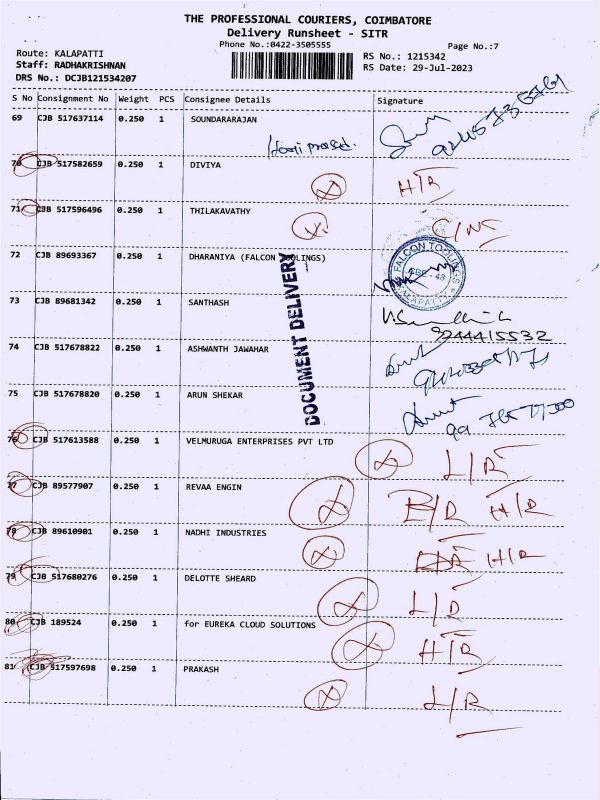 THE PROFESSIONAL COURIERS, COIMBATORE
Delivery Runsheet - SITR
Phone No.:0422-3505555
Page No.:7
Route: KALAPATTI
RS No.: 1215342
Staff: RADHAKRISHNAN
RS Date: 29-Jul-2023
DRS No.: DCJB121534207
S No Consignment No Weight PCS Consignee Details Signature
69 CJB 517637114 0.250 1 SOUNDARARAJAN
70 CJB 517582659 0.250 1 DIVIYA H/R
71 CJB 517596496 0.250 1 THILAKAVATHY
72 CJB 89693367 0.250 1 DHARANIYA (FALCON TOOLINGS)
FALCON TOOLINGS
73 CJB 89681342 0.250 1 SANTHASH
9244415532
74 CJB 517678822 0.250 1 ASHWANTH JAWAHAR
DOCUMENT DELIVERY
75 CJB 517678820 0.250 1 ARUN SHEKAR
76 CJB 517613588 0.250 1 VELMURUGA ENTERPRISES PVT LTD L/R
77 CJB 89577907 0.250 1 REVAA ENGIN H/R
78 CJB 89610901 0.250 1 NADHI INDUSTRIES H/R
79 CJB 517680276 0.250 1 DELOTTE SHEARD
80 CJB 189524 0.250 1 for EUREKA CLOUD SOLUTIONS H/R
81 CJB 517597698 0.250 1 PRAKASH L/R